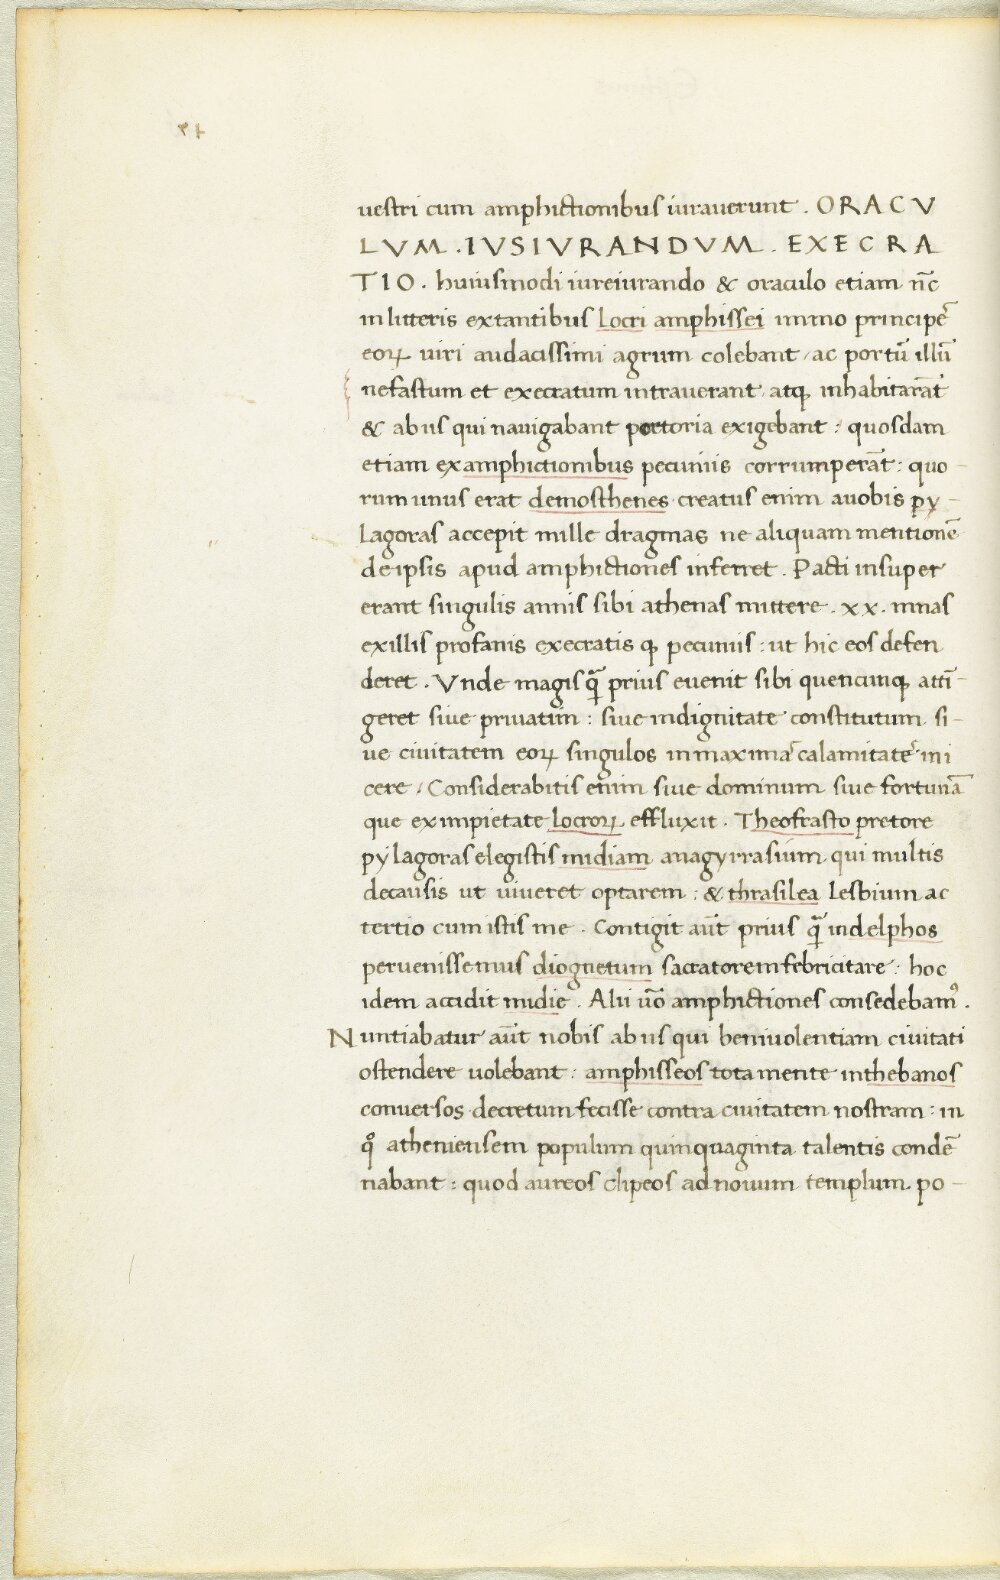 vestri cum amphictionibus iuraverunt . ORACV
LVM . IVSIVRANDVM . EXECRA
TIO . huiusmodi iureiurando & oraculo etiam nūc
in litteris extantibus Locri amphissei immo principē
eoꝝ uiri audacissimi agrum colebant / ac portū illū
nefastum et execratum intraverant / atq; inhabitarāt
& ab iis qui navigabant portoria exigebant : quosdam
etiam ex amphictionibus pecuniis corrumperāt : quo
rum unus erat demosthenes creatus enim a vobis py -
lagoras accepit mille dragmas ne aliquam mentionē
de ipsis apud amphictiones inferret . Pacti insuper
erant singulis annis sibi athenas mittere . xx . minas
ex illis profanis execratis q; pecuniis : ut hic eos defen
deret . Vnde magis q̄ prius evenit sibi quencunq; attī -
geret sive privatim : sive in dignitate constitutum si -
ve civitatem eoꝝ singulos in maxima calamitate ini
cere / Considerabitis enim sive dominum sive fortunā
que ex impietate locroꝝ effluxit . Theofrasto pretore
pylagoras elegistis midiam anagyrrasium qui multis
de causis ut viveret optarem : & thrasilea lesbium ac
tertio cum istis me . Contigit aūt prius q̄ in delphos
pervenissemus diognetum sacratorem febricitare : hoc
idem accidit midie . Alii ūo amphictiones consedebamꝰ .
Nuntiabatur aūt nobis ab iis qui benivolentiam civitati
ostendere volebant : amphisseos tota mente in thebanos
conversos decretum fecisse contra civitatem nostram : in
q̊ atheniensem populum quinquaginta talentis condē
nabant : quod aureos clipeos ad novum templum po -